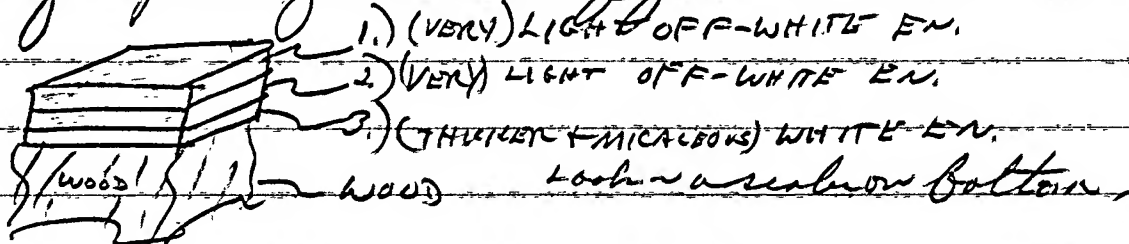 1.) (VERY) LIGHT OFF-WHITE EN.
2.) (VERY) LIGHT OFF-WHITE EN.
3.) (THICKER + MICACEOUS) WHITE EN.
WOOD
WOOD